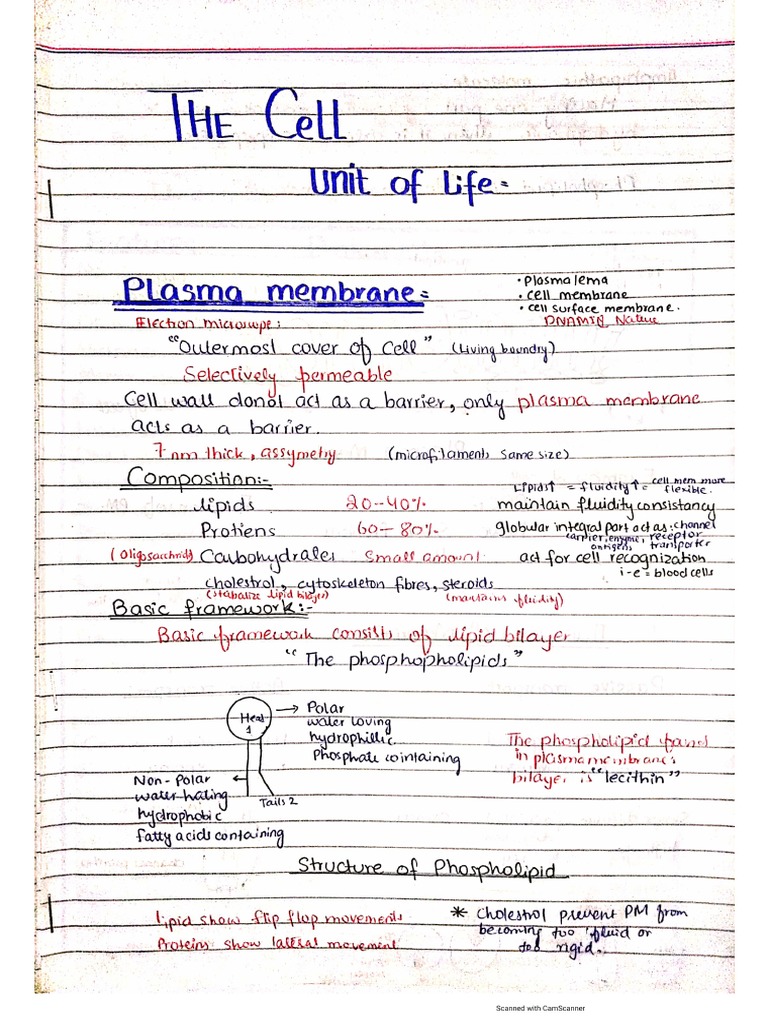 THE Cell
Unit of Life =
Plasma membrane =
• Plasmalema
• Cell membrane
• Cell surface membrane.
DNAMIC Nature
Electron microscope:
"Outermost cover of Cell" (Living boundry)
Selectively permeable
Cell wall donot act as a barrier, only plasma membrane
acts as a barrier.
7 nm thick, assymetry (microfilaments same size)
Composition:-
Lipids↑ = fluidity↑ = cell mem more flexible.
Lipids 20-40% maintain fluidity consistancy
Protiens 60-80% globular integral part act as: channel
carrier, enzyme, receptor
antigens, transporter
(Oligosaccharids) Carbohydrates Small amount act for cell recognization
i-e = blood cells
cholestrol, cytoskeleton fibres, steroids
(stabalize lipid bilayer) (maintains fluidity)
Basic framework:-
Basic framework consists of lipid bilayer
"The phosphopholipids"
Head
1
→ Polar
water loving
hydrophillic
Phosphate cointaining
Non-Polar
water hating
hydrophobic
fatty acids containing
Tails 2
The phospholipid found
in plasma membranes
bilayer is "lecithin"
Structure of Phospholipid
Lipid show flip flop movements
Proteins show lateral movement
* Cholestrol prevent PM from
becoming too fluid or
too rigid.
Scanned with CamScanner